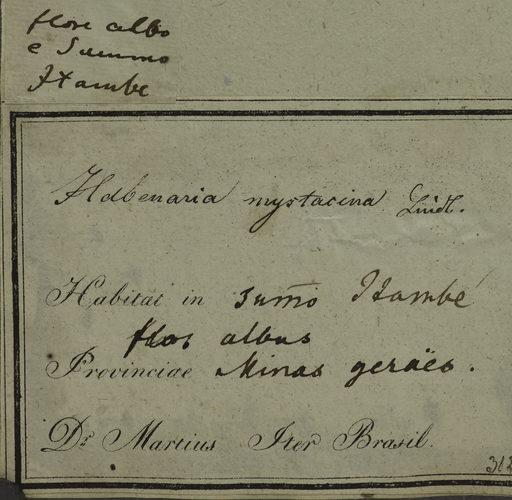 flore albo
e Summo
Itambe
Habenaria mystacina Lindl.
Habitat in sum̄o Itambé
flos albus
Provinciae Minas geraës.
Dr Martius Iter Brasil.